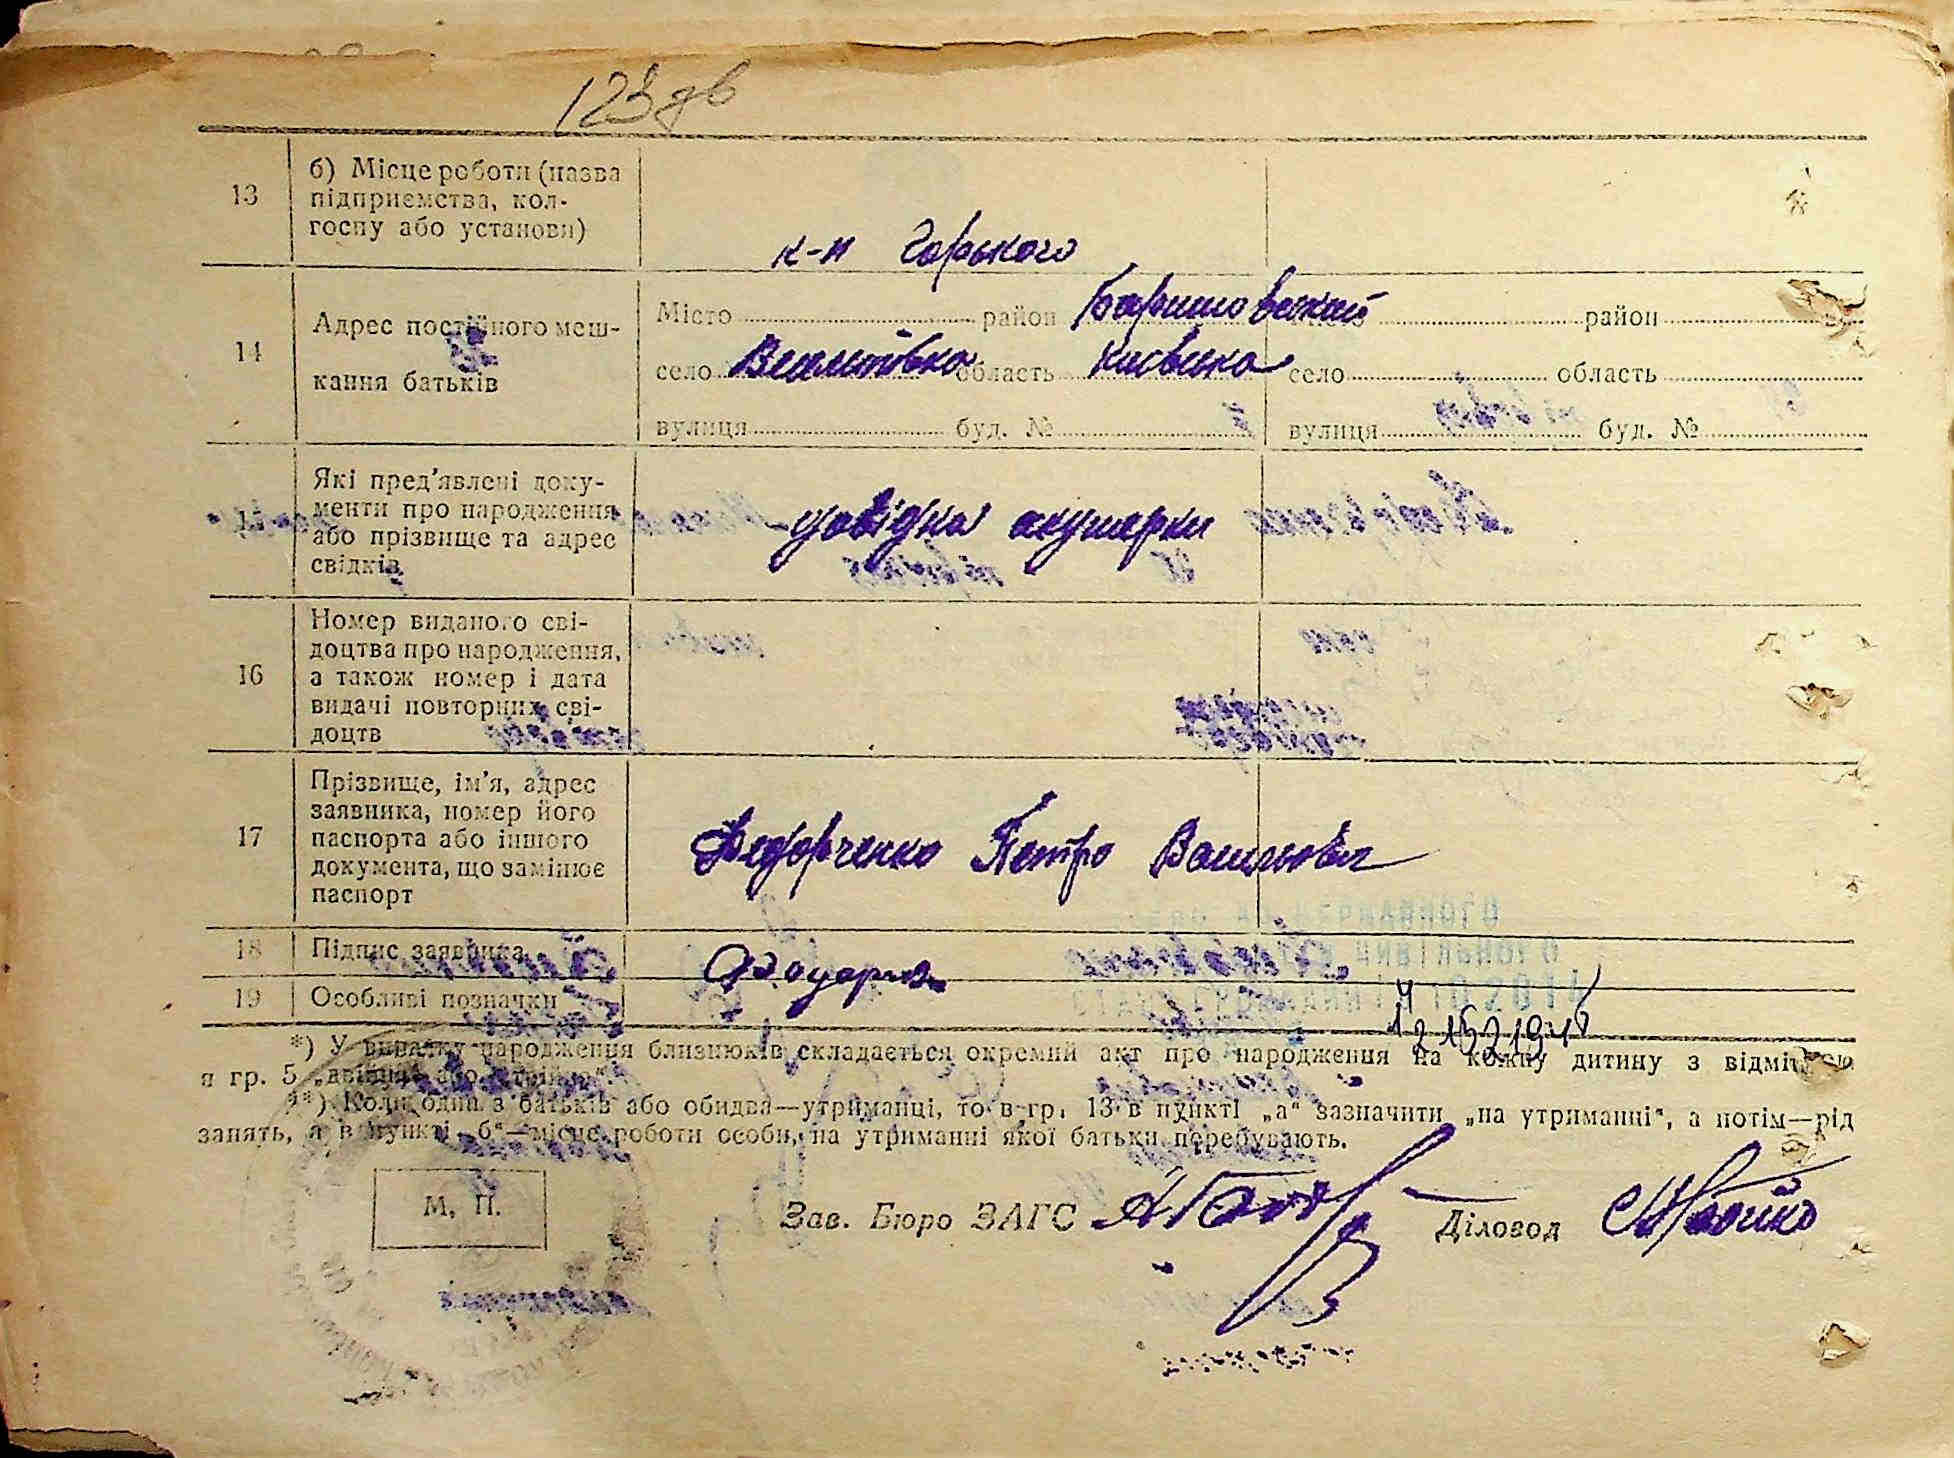 123 зв
13
б) Місце роботи (назва
підприємства, кол-
госпу або установи)
к-п Горького
14
Адрес постійного меш-
кання батьків
Місто район Баришовський район
село область Київська село область
вулиця буд. № вулиця буд. №
15
Які пред'явлені доку-
менти про народження
або прізвище та адрес
свідків
довідка акушерки
16
Номер виданого сві-
доцтва про народження,
а також номер і дата
видачі повторних сві-
доцтв
17
Прізвище, ім'я, адрес
заявника, номер його
паспорта або іншого
документа, що замінює
паспорт
Федорченко Петро Васильович
18 Підпис заявника
19 Особливі позначки
*) У випадку народження близнюків складається окремий акт про народження на кожну дитину з відміткою
в гр. 5 „двійня або трійня“.
**) Коли одна з батьків або обидва—утриманці, то в гр. 13 в пункті „а“ зазначити „на утриманні“, а потім—рід
занять, а в пункті „б“—місце роботи особи, на утриманні якої батьки перебувають.
М. П.
Зав. Бюро ЗАГС
Діловод